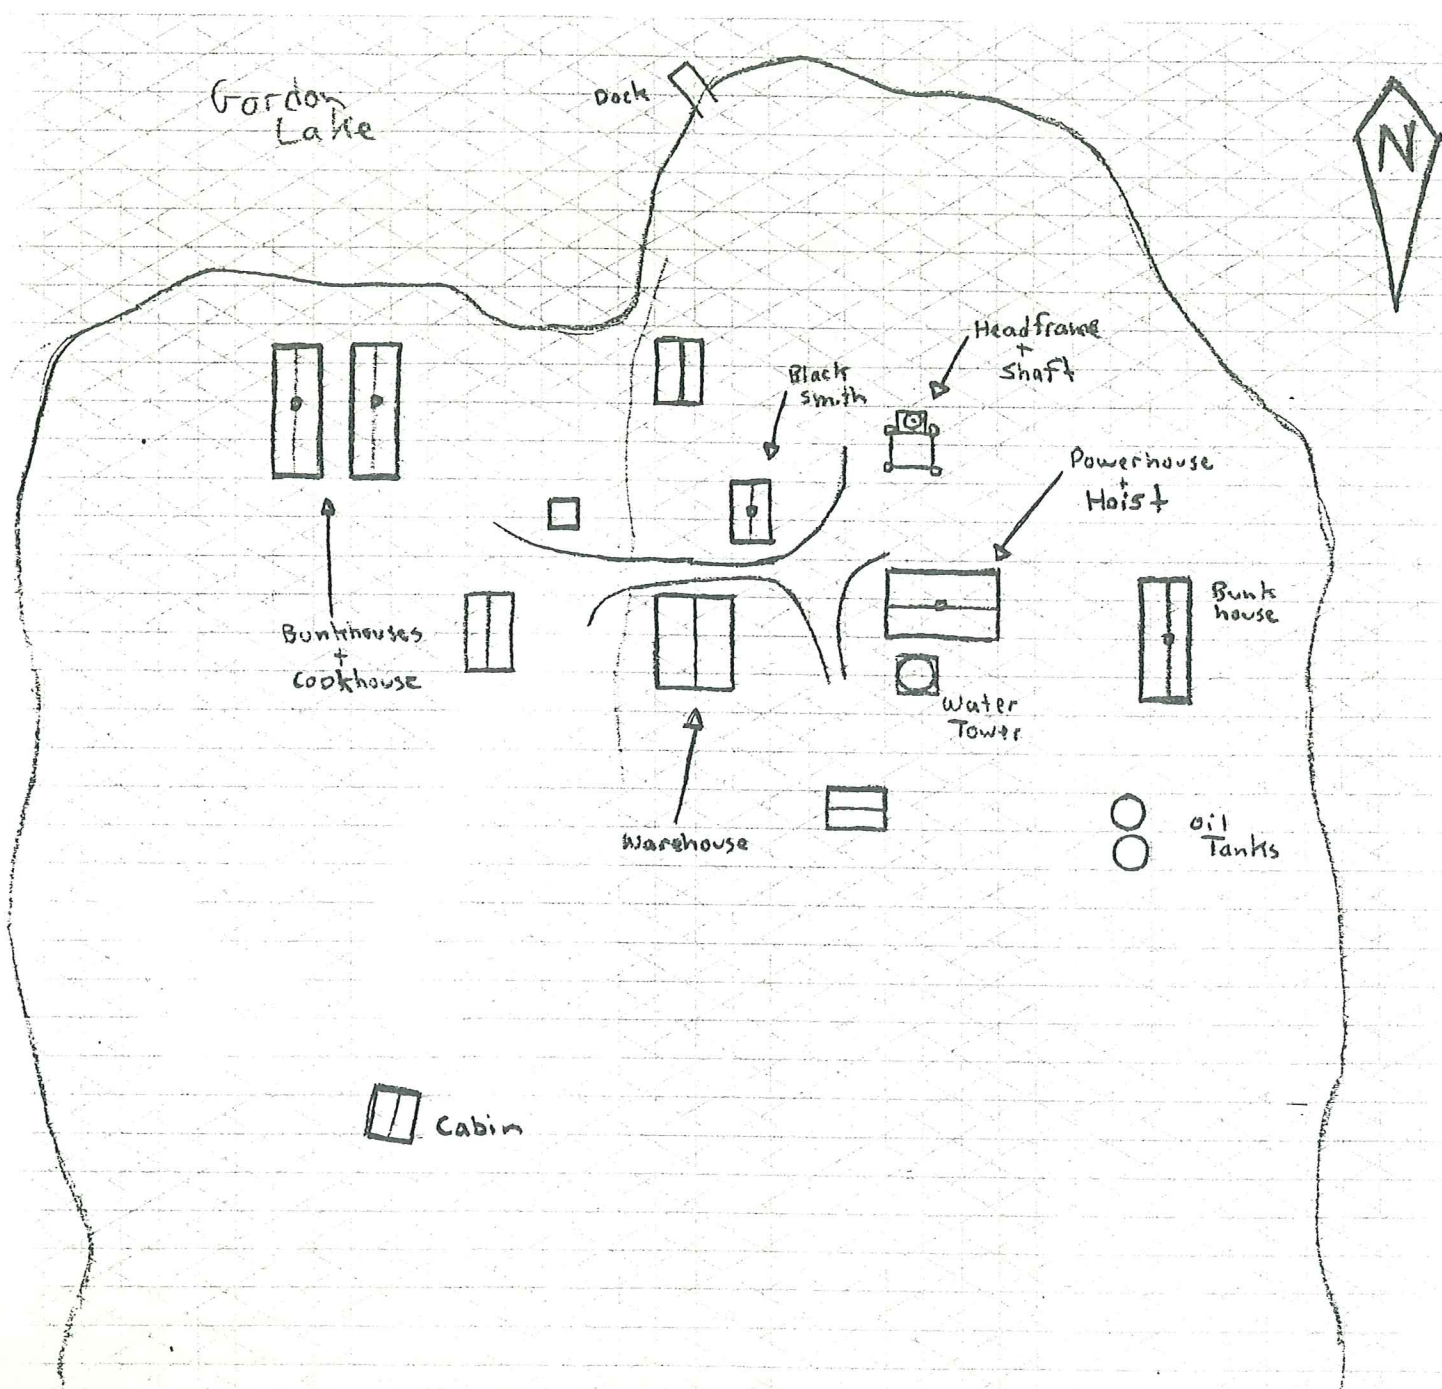 Gordon
Lake
Dock
N
Headframe
+
Shaft
Black
Smith
Powerhouse
+
Hoist
Bunk
house
Bunkhouses
+
Cookhouse
Water
Tower
Warehouse
Oil
Tanks
Cabin